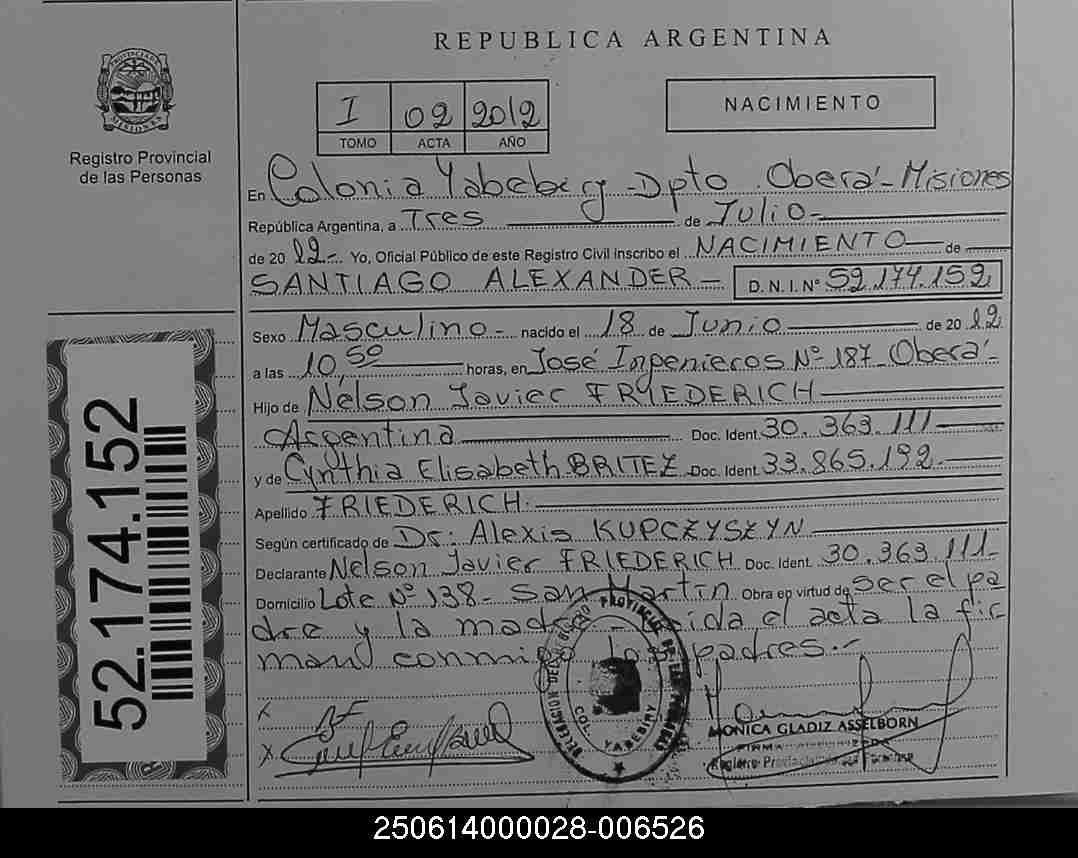 REPUBLICA ARGENTINA
PROVINCIA DE MISIONES
Registro Provincial
de las Personas
I 02 2012
TOMO ACTA AÑO
NACIMIENTO
En Colonia Yabebiry - Dpto. Oberá - Misiones
República Argentina, a Tres de Julio -
de 20 12 - Yo, Oficial Público de este Registro Civil inscribo el NACIMIENTO de
SANTIAGO ALEXANDER - D.N.I. N° 52.174.152
Sexo Masculino - nacido el 18 de Junio de 20 12
a las 10,50 horas, en José Ingenieros N° 187 - Oberá -
Hijo de Nelson Javier FRIEDERICH
Argentina Doc. Ident. 30.363.111
y de Cynthia Elisabeth BRITEZ Doc. Ident. 33.865.192 -
Apellido FRIEDERICH.-
Según certificado de Dr: Alexis KUPCZYSZYN
Declarante Nelson Javier FRIEDERICH Doc. Ident. 30.363.111 -
Domicilio Lote N° 138 - San Martín Obra en virtud de ser el pa
dre y la madre el acta la fir
man conmigo los padres.-
52.174.152
DELEGACION DEL REGISTRO PROVINCIAL DE LAS PERSONAS
COL. YABEBIRY
MONICA GLADIZ ASSELBORN
FIRMA AUTORIZADA
Registro Provincial de las Personas
250614000028-006526